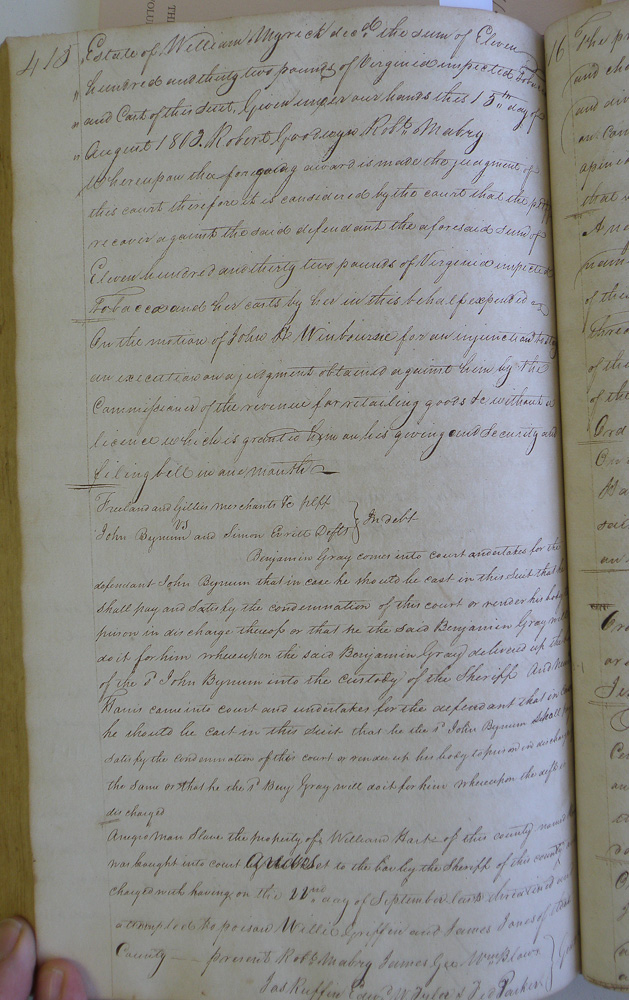 415
Estate of William Myrick decd. the sum of Eleven
" hundred and thirty two pounds of Virginia inspected Tobacco
" and Cost of this Suit, Given under our hands this 15th day of
" August 1803. Robert Goodwyn Robt. Mabry
Whereupon the foregoing award is made the judgment of
this court therefore it is considered by the court that the pltf
recover against the said defendant the aforesaid Sum of
Eleven hundred and thirty two pounds of Virginia inspected
Tobacco and her costs by her in this behalf expended
On the motion of John H Winbourne for an injunction to stay
an execution on a judgment obtained against him by the
Commissioner of the revenue for retailing goods &c without a
licence which is granted him on his giving and Security and
filing bill in one month
Freeland and Gillies merchants &c pltfs
vs In debt
John Bynum and Simon Everitt Defts
Benjamin Gray comes into court undertakes for the
defendant John Bynum that in case he should be cast in this Suit that he
shall pay and satisfy the condemnation of this court or render his body to
prison in discharge thereof or that he the said Benjamin Gray will
do it for him whereupon the said Benjamin Gray delivered up the body
of the sd. John Bynum into the custody of the Sheriff And
Harris came into court and undertakes for the defendant that in case
he should be cast in this Suit that he the sd. John Bynum shall pay
satisfy the condemnation of this court or render up his body to prison in discharge
the same or that he the sd. Benj Gray will do it for him whereupon the deft is
discharged
A negro man Slave the property of William Hart of this county named
was brought into court and set to the bar by the Sheriff of this county
charged with having on the 22nd day of September last
attempted to poison Willie Griffin and James Jones of this
County — present Robt. Mabry James Gee Wm. Blow
Jas Ruffin Edwd. W. Tyler & Parker
16 The pr
and cha
and div
on Can
apinio
that
And
nam
of the
three
of the
of the
Cord
On
Ha
sail
an